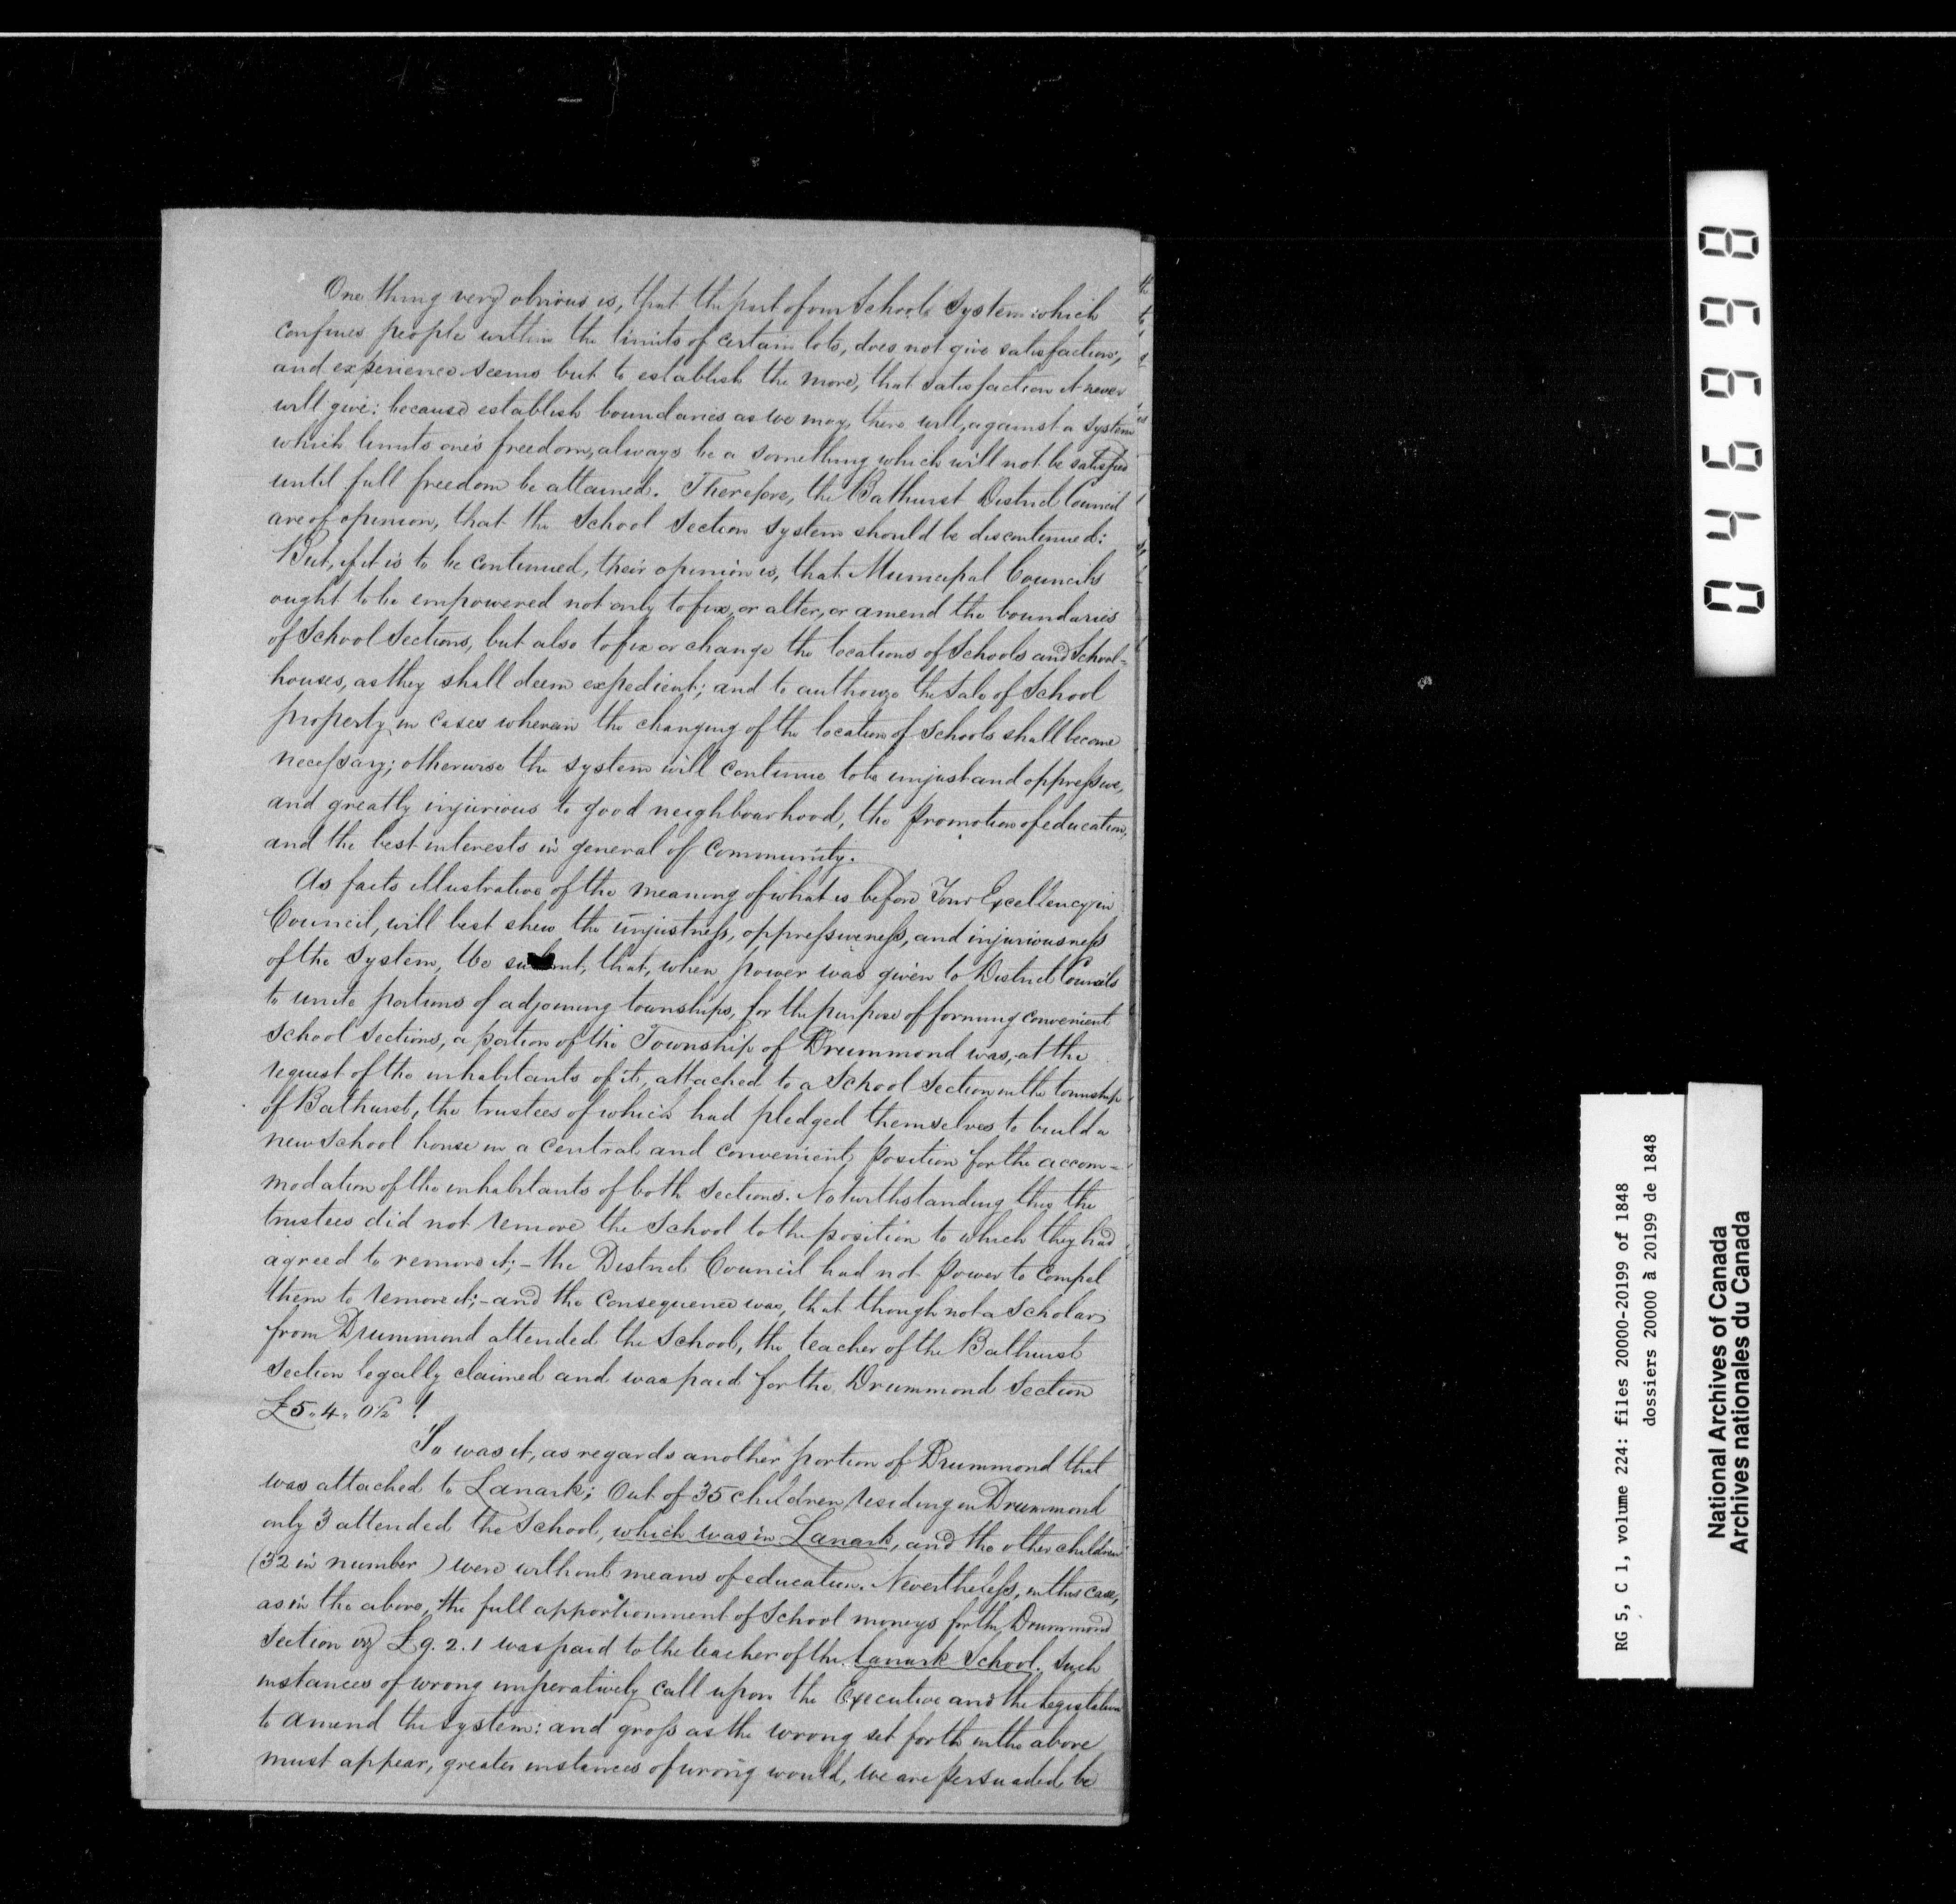 One thing very obvious is, that the part of our School System which
confines people within the limits of certain lots, does not give satisfaction;
and experience seems but to establish the more, that satisfaction it never
will give: because establish boundaries as we may, there will, against a system
which limits one's freedom, always be a something which will not be satisfied
until full freedom be attained. Therefore, the Bathurst District Council
are of opinion, that the School Section system should be discontinued:
But, if it is to be continued, their opinion is, that Municipal Councils
ought to be empowered not only to fix, or alter, or amend the boundaries
of School Sections, but also to fix or change the locations of Schools and School=
houses, as they shall deem expedient; and to authorize the sale of School
property in cases wherein the changing of the location of Schools shall become
necessary; otherwise the system will continue to be unjust and oppressive,
and greatly injurious to good neighbourhood, the promotion of education,
and the best interests in general of Community.
As facts illustrative of the meaning of what is before Your Excellency in
Council, will best shew the unjustness, oppressiveness, and injuriousness
of the System, We submit, that, when power was given to District Councils
to unite portions of adjoining townships, for the purpose of forming convenient
School Sections, a portion of the Township of Drummond was, at the
request of the inhabitants of it, attached to a School Section in the township
of Bathurst, the trustees of which had pledged themselves to build a
new School house in a central and convenient position for the accom=
modation of the inhabitants of both Sections. Notwithstanding this the
trustees did not remove the School to the position to which they had
agreed to remove it; – the District Council had not power to compel
them to remove it; – and the consequence was, that though not a Scholar
from Drummond attended the School, the teacher of the Bathurst
Section legally claimed and was paid for the Drummond Section
£5 „ 4 „ 0½ !
So was it, as regards another portion of Drummond that
was attached to Lanark; Out of 35 children residing in Drummond
only 3 attended the School, which was in Lanark, and the other children
(32 in number) were without means of education. Nevertheless, in this case,
as in the above, the full apportionment of School moneys for the Drummond
Section viz £9. 2. 1 was paid to the teacher of the Lanark School. Such
instances of wrong imperatively call upon the Executive and the Legislature
to amend the system: and gross as the wrong set forth in the above
must appear, greater instances of wrong would, we are persuaded, be
046998
RG 5, C 1, volume 224: files 20000-20199 of 1848
dossiers 20000 à 20199 de 1848
National Archives of Canada
Archives nationales du Canada